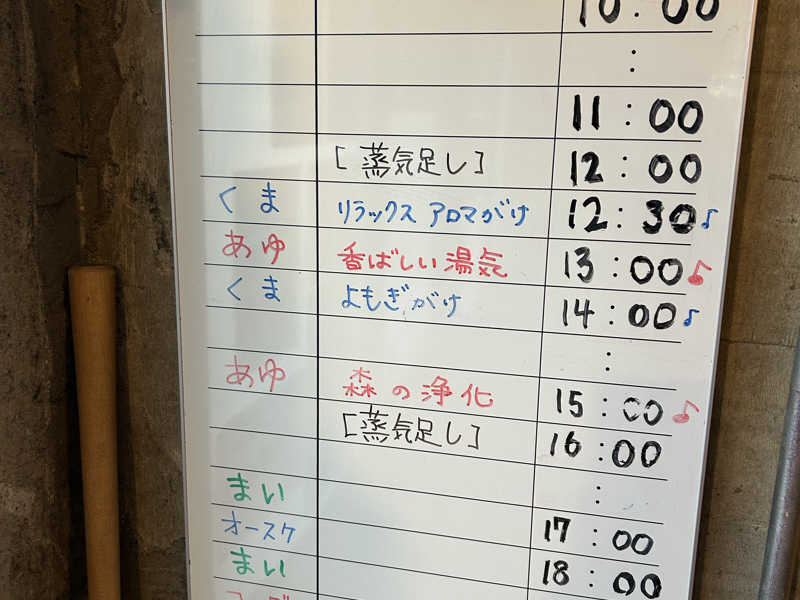 10:00
:
11:00
[蒸気足し] 12:00
くま リラックス アロマがけ 12:30♪
あゆ 香ばしい湯気 13:00♪
くま よもぎがけ 14:00♪
:
あゆ 森の浄化 15:00♪
[蒸気足し] 16:00
まい :
オースケ 17:00
まい 18:00